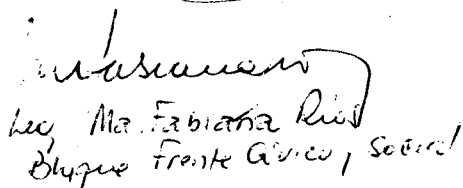 Leg. Ma. Fabiana Rios
Bloque Frente Cívico y Social